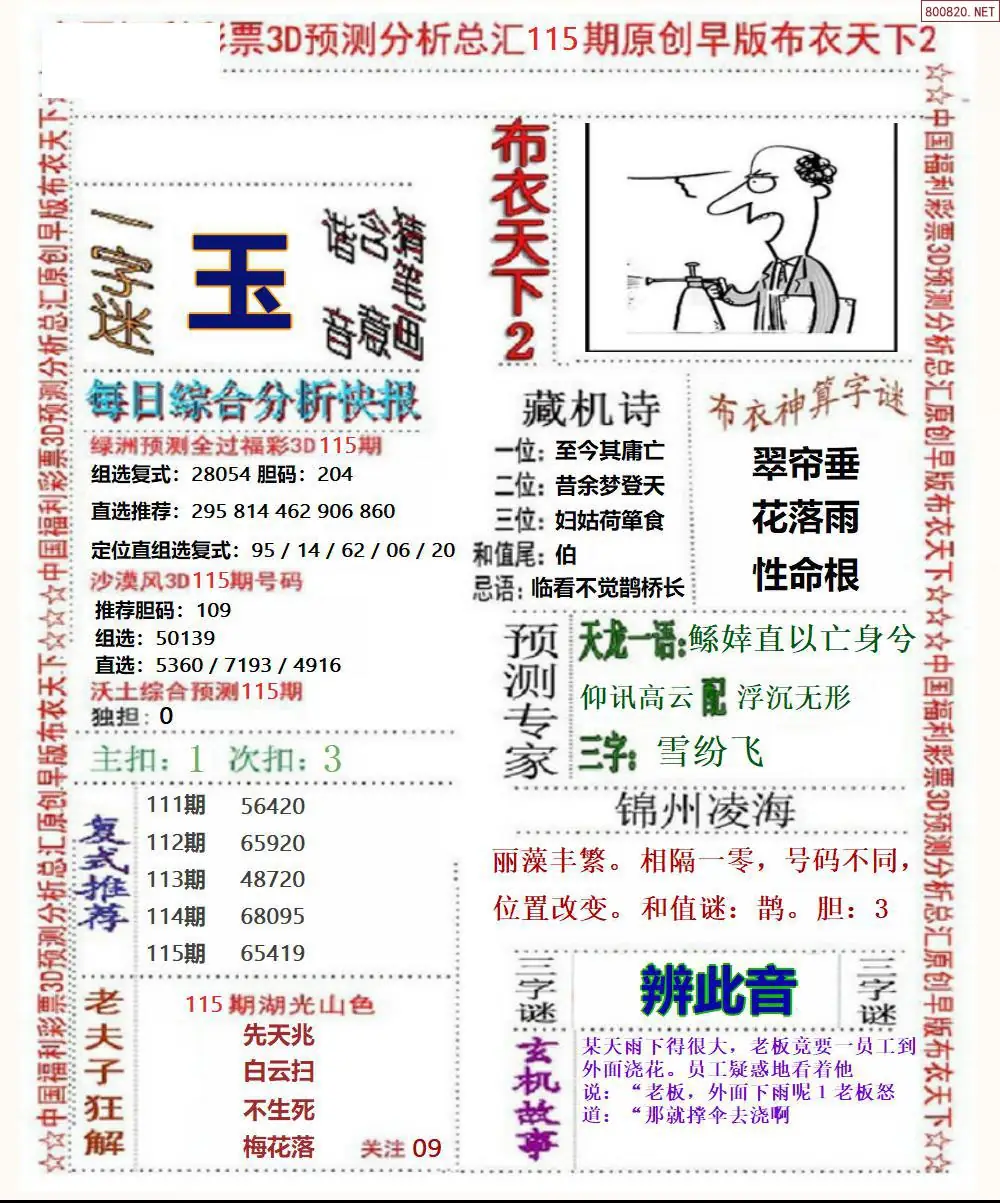 800820.NET
彩票3D预测分析总汇115期原创早版布衣天下2
☆☆中国福利彩票3D预测分析总汇原创早版布衣天下☆☆☆中国福利彩票3D预测分析总汇原创早版布衣天下☆
一字迷
玉
猜笔画
含意
谐音
布衣天下2
每日综合分析快报
绿洲预测全过福彩3D115期
组选复式：28054 胆码：204
直选推荐：295 814 462 906 860
定位直组选复式：95 / 14 / 62 / 06 / 20
沙漠风3D115期号码
推荐胆码：109
组选：50139
直选：5360 / 7193 / 4916
沃土综合预测115期
独担：0
主扣：1 次扣：3
复式推荐
111期 56420
112期 65920
113期 48720
114期 68095
115期 65419
老夫子狂解
115期湖光山色
先天兆
白云扫
不生死
梅花落
关注 09
藏机诗
一位：至今其庸亡
二位：昔余梦登天
三位：妇姑荷箪食
和值尾：伯
忌语：临看不觉鹊桥长
布衣神算字谜
翠帘垂
花落雨
性命根
预测专家
天龙一语：鲧婞直以亡身兮
仰讯高云 配 浮沉无形
三字：雪纷飞
锦州凌海
丽藻丰繁。相隔一零，号码不同，
位置改变。和值谜：鹊。胆：3
三字谜
辨此音
三字谜
玄机故事
某天雨下得很大，老板竟要一员工到
外面浇花。员工疑惑地看着他
说：“老板，外面下雨呢 1 老板怒
道：“那就撑伞去浇啊
☆☆中国福利彩票3D预测分析总汇原创早版布衣天下☆☆☆中国福利彩票3D预测分析总汇原创早版布衣天下☆☆